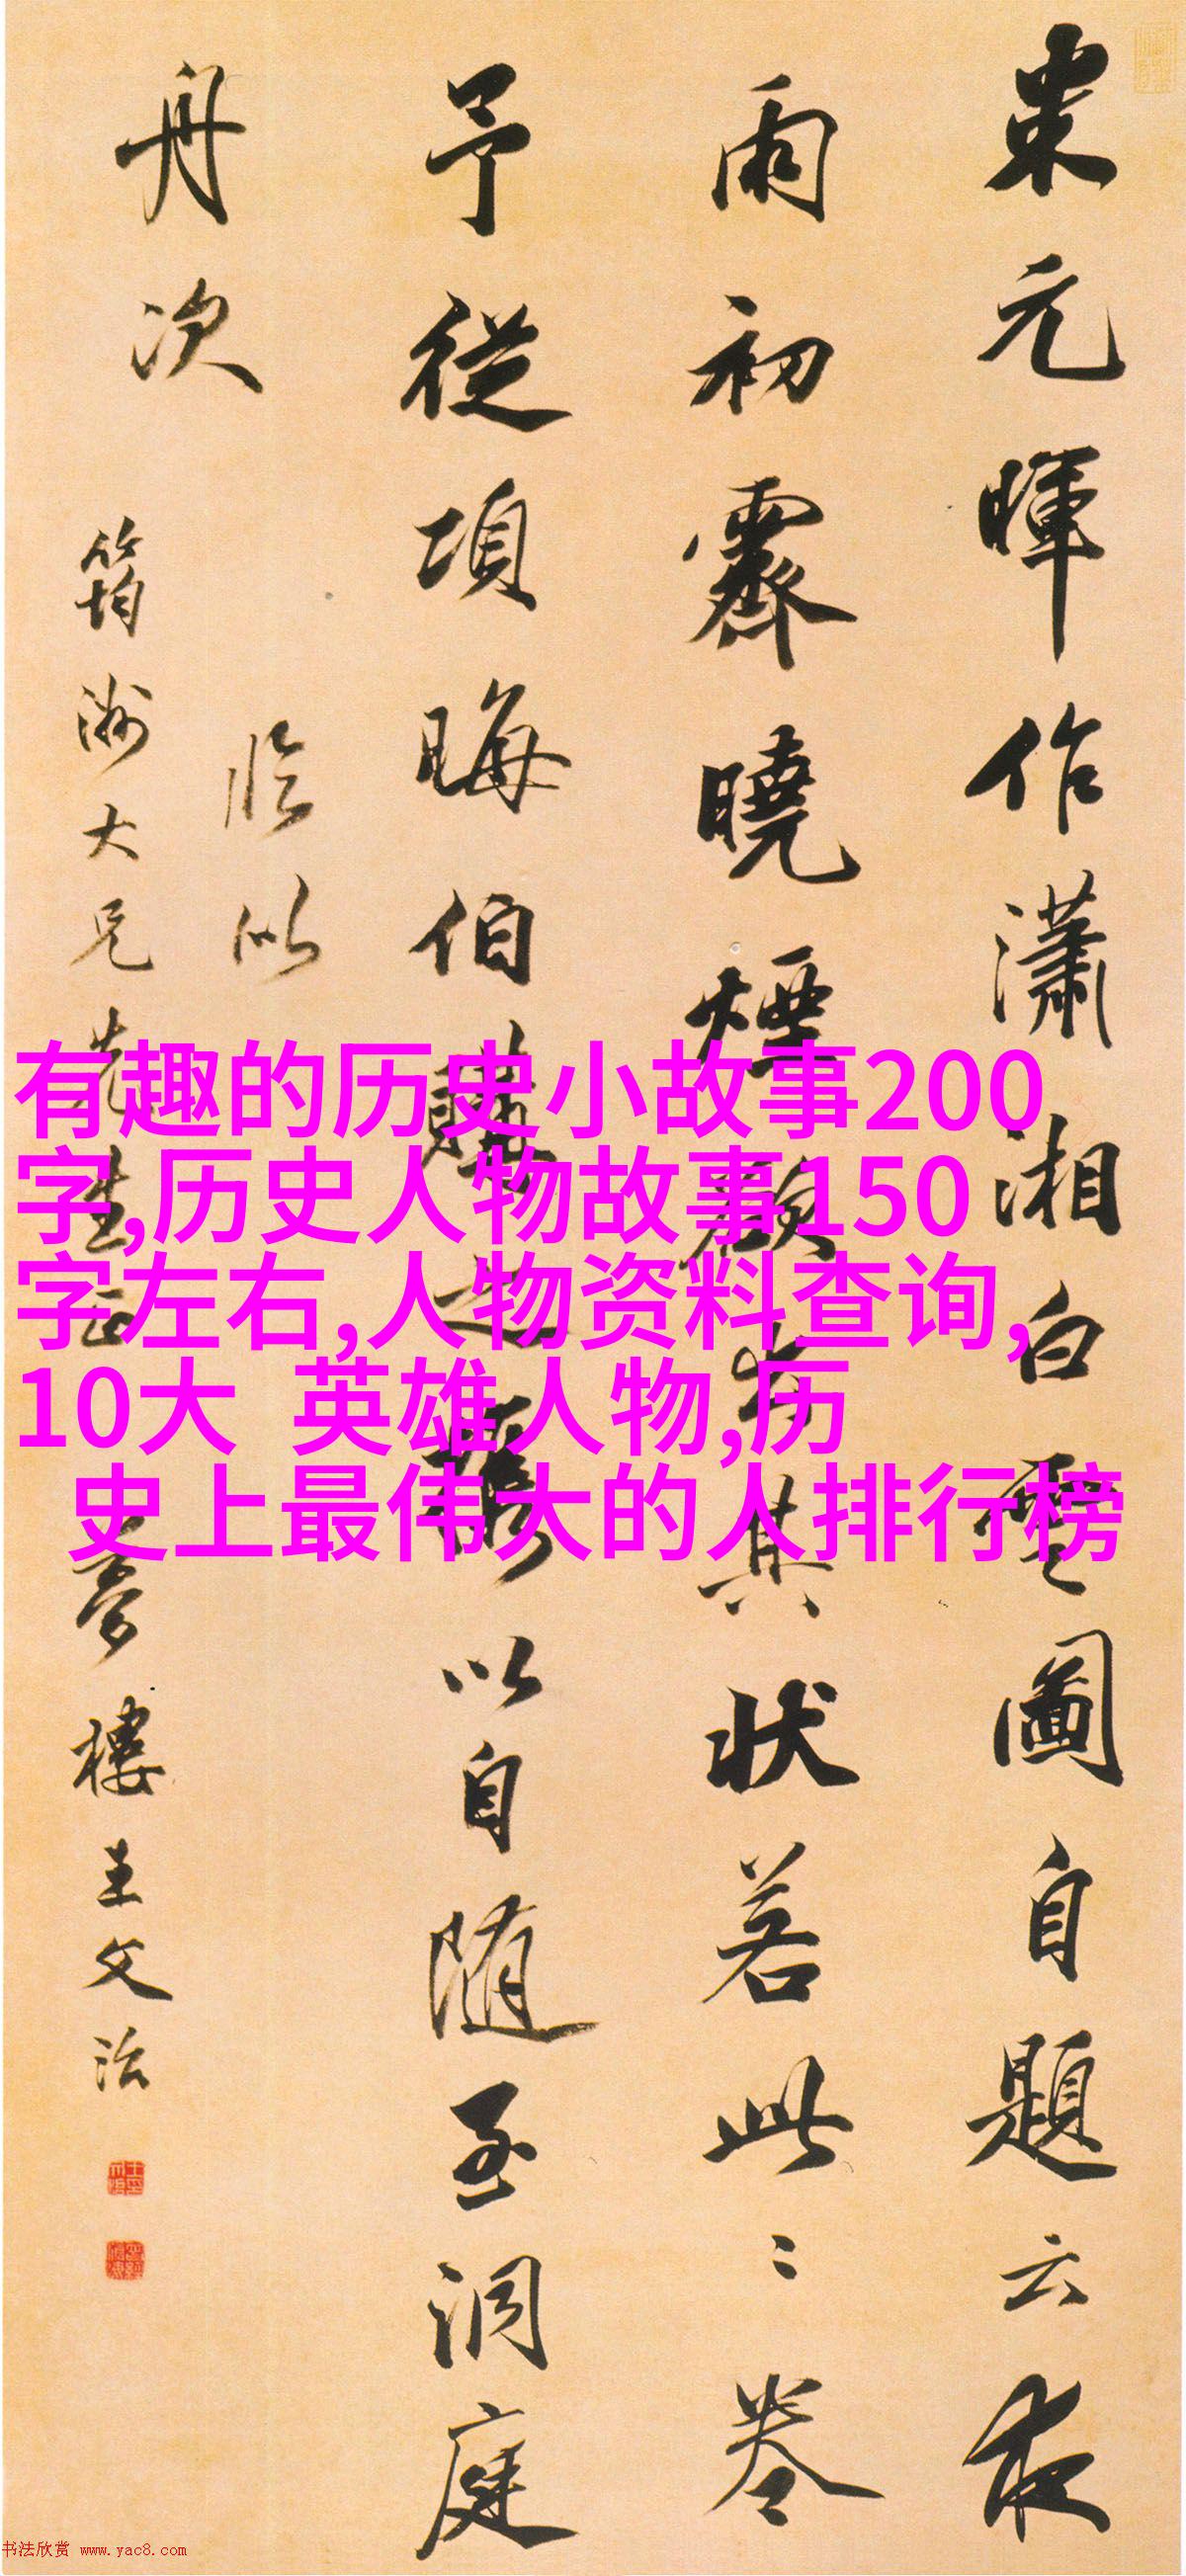 米元暉作瀟湘白雲圖自題云夜
雨初霽曉煙欲出其狀若此〻卷
予從項晦伯購之攜以自隨至洞庭
舟次
臨似
筠洲大兄先生正 夢樓王文治
有趣的历史小故事200
字,历史人物故事150
字左右,人物资料查询,
10大 英雄人物,历
史上最伟大的人排行榜
书法欣赏 www.yac8.com